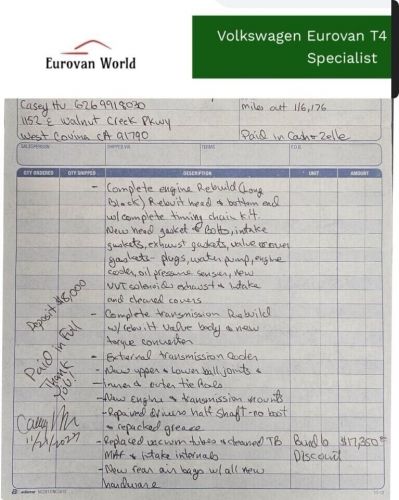 Eurovan World
Volkswagen Eurovan T4
Specialist
Casey Hu 6269918030
miles at 116,176
1152 E Walnut Creek Pkwy
West Covina CA 91790
Paid in Cash & Zelle
SALESPERSON SHIPPED VIA TERMS F.O.B.
QTY ORDERED QTY SHIPPED DESCRIPTION UNIT AMOUNT
- Complete engine Rebuild (Long
Block) Rebuilt head & bottom end
w/complete timing chain kit.
New head gasket & Bolts, intake
gaskets, exhaust gaskets, valve cover
gaskets - plugs, water pump, engine
cooler, oil pressure sensor, new
VVT solenoids exhaust & intake
and cleaned covers
- Complete transmission Rebuild
w/rebuilt valve body & new
torque converter
- External transmission Cooler
- New upper & lower ball joints &
- Inner & outer tie Rods
- New Engine & transmission mounts
- Repaired drivers half shaft - no boot
& repacked grease
- Replaced vacuum tubes & cleaned TB
MAF & intake internals
- New rear air bags w/ all new
hardware
Bundle $17,350
Discount
Deposit $8,000
Paid in Full
Thank
You!
11/21/2023